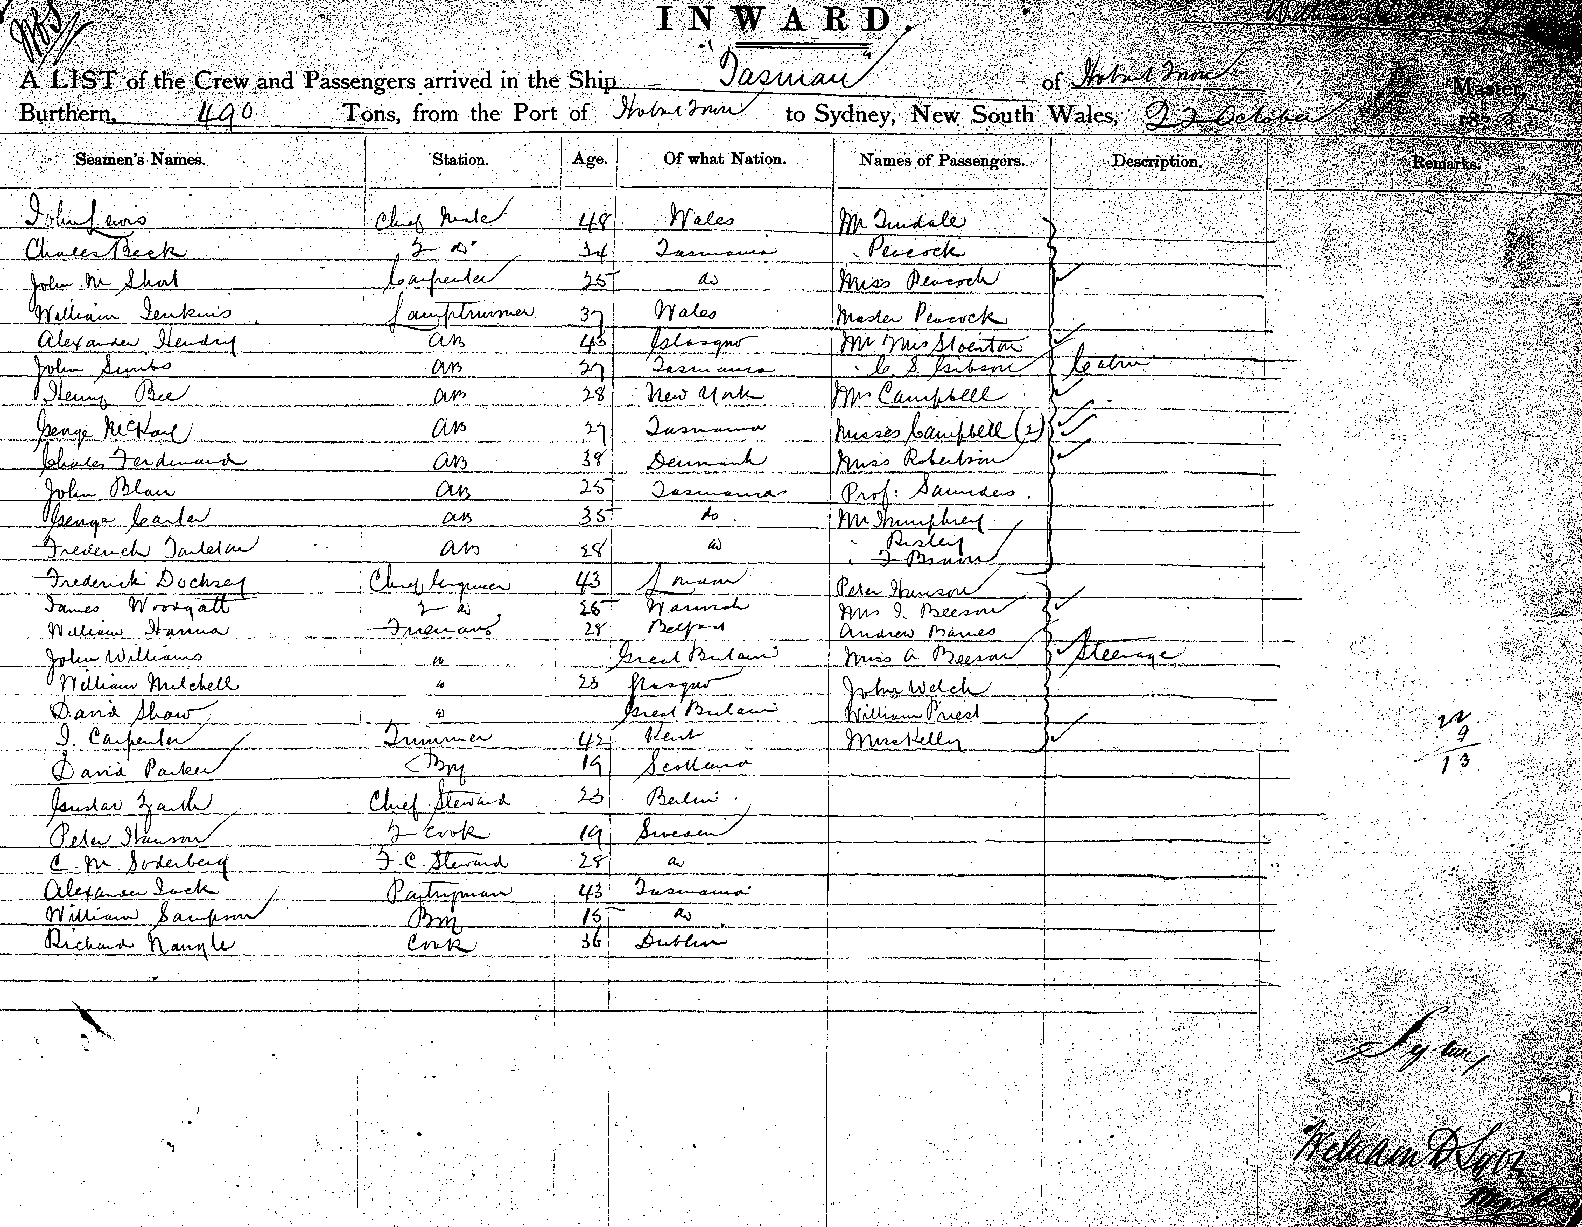 INWARD.
A LIST of the Crew and Passengers arrived in the Ship "Tasman" of Hobart Town Master,
Burthern, 490 Tons, from the Port of Hobart Town to Sydney, New South Wales, 22 October
Seamen's Names. Station. Age. Of what Nation. Names of Passengers. Description. Remarks.
John Lewis Chief Mate 48 Wales Mr Tindale
Charles Beck 2 do 34 Tasmania " Peacock
John M Short Carpenter 25 do Miss Peacock
William Jenkins Lamptrimmer 37 Wales Master Peacock
Alexander Hendry AB 43 Glasgow Mr Mrs
John AB 27 Tasmania " C. S. Gibson Cabin
Henry Bee AB 28 New York Mrs Campbell
George AB 27 Tasmania Misses Campbell (2)
Charles Ferdinand AB 38 Denmark Miss Robertson
John Blair AB 25 Tasmania Prof: Saunders.
George Carter AB 35 do Mr Humphrey
Frederick Tarleton AB 28 do " Risley
" F Brown
Frederick Dochsey Chief Engineer 43 Peter Hanson
James Woodgatt 2 do 25 Mrs J. Beeson
William Hanna Fireman 28 Belfast Andrew Barnes
John Williams " Great Britain Miss A Beeson Steerage
William Mitchell " 23 Glasgow John Welch
David Shaw " Great Britain William Priest
J. Carpenter Trimmer 42 Kent Mrs Kelly
David Parker Boy 19 Scotland
Gustav Chief Steward 23 Berlin
Peter Hanson 2 Cook 19 Sweden
C. M. Soderberg F. C. Steward 28 do
Alexander Lock Pantryman 43 Tasmania
William Sampson Boy 15 do
Richard Nangle Cook 36 Dublin
22
9
13
Sydney